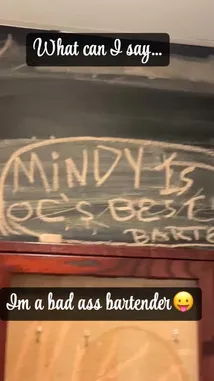 What can I say...
MiNDY Is
OC's BEST
BARTE
Im a bad ass bartender😛